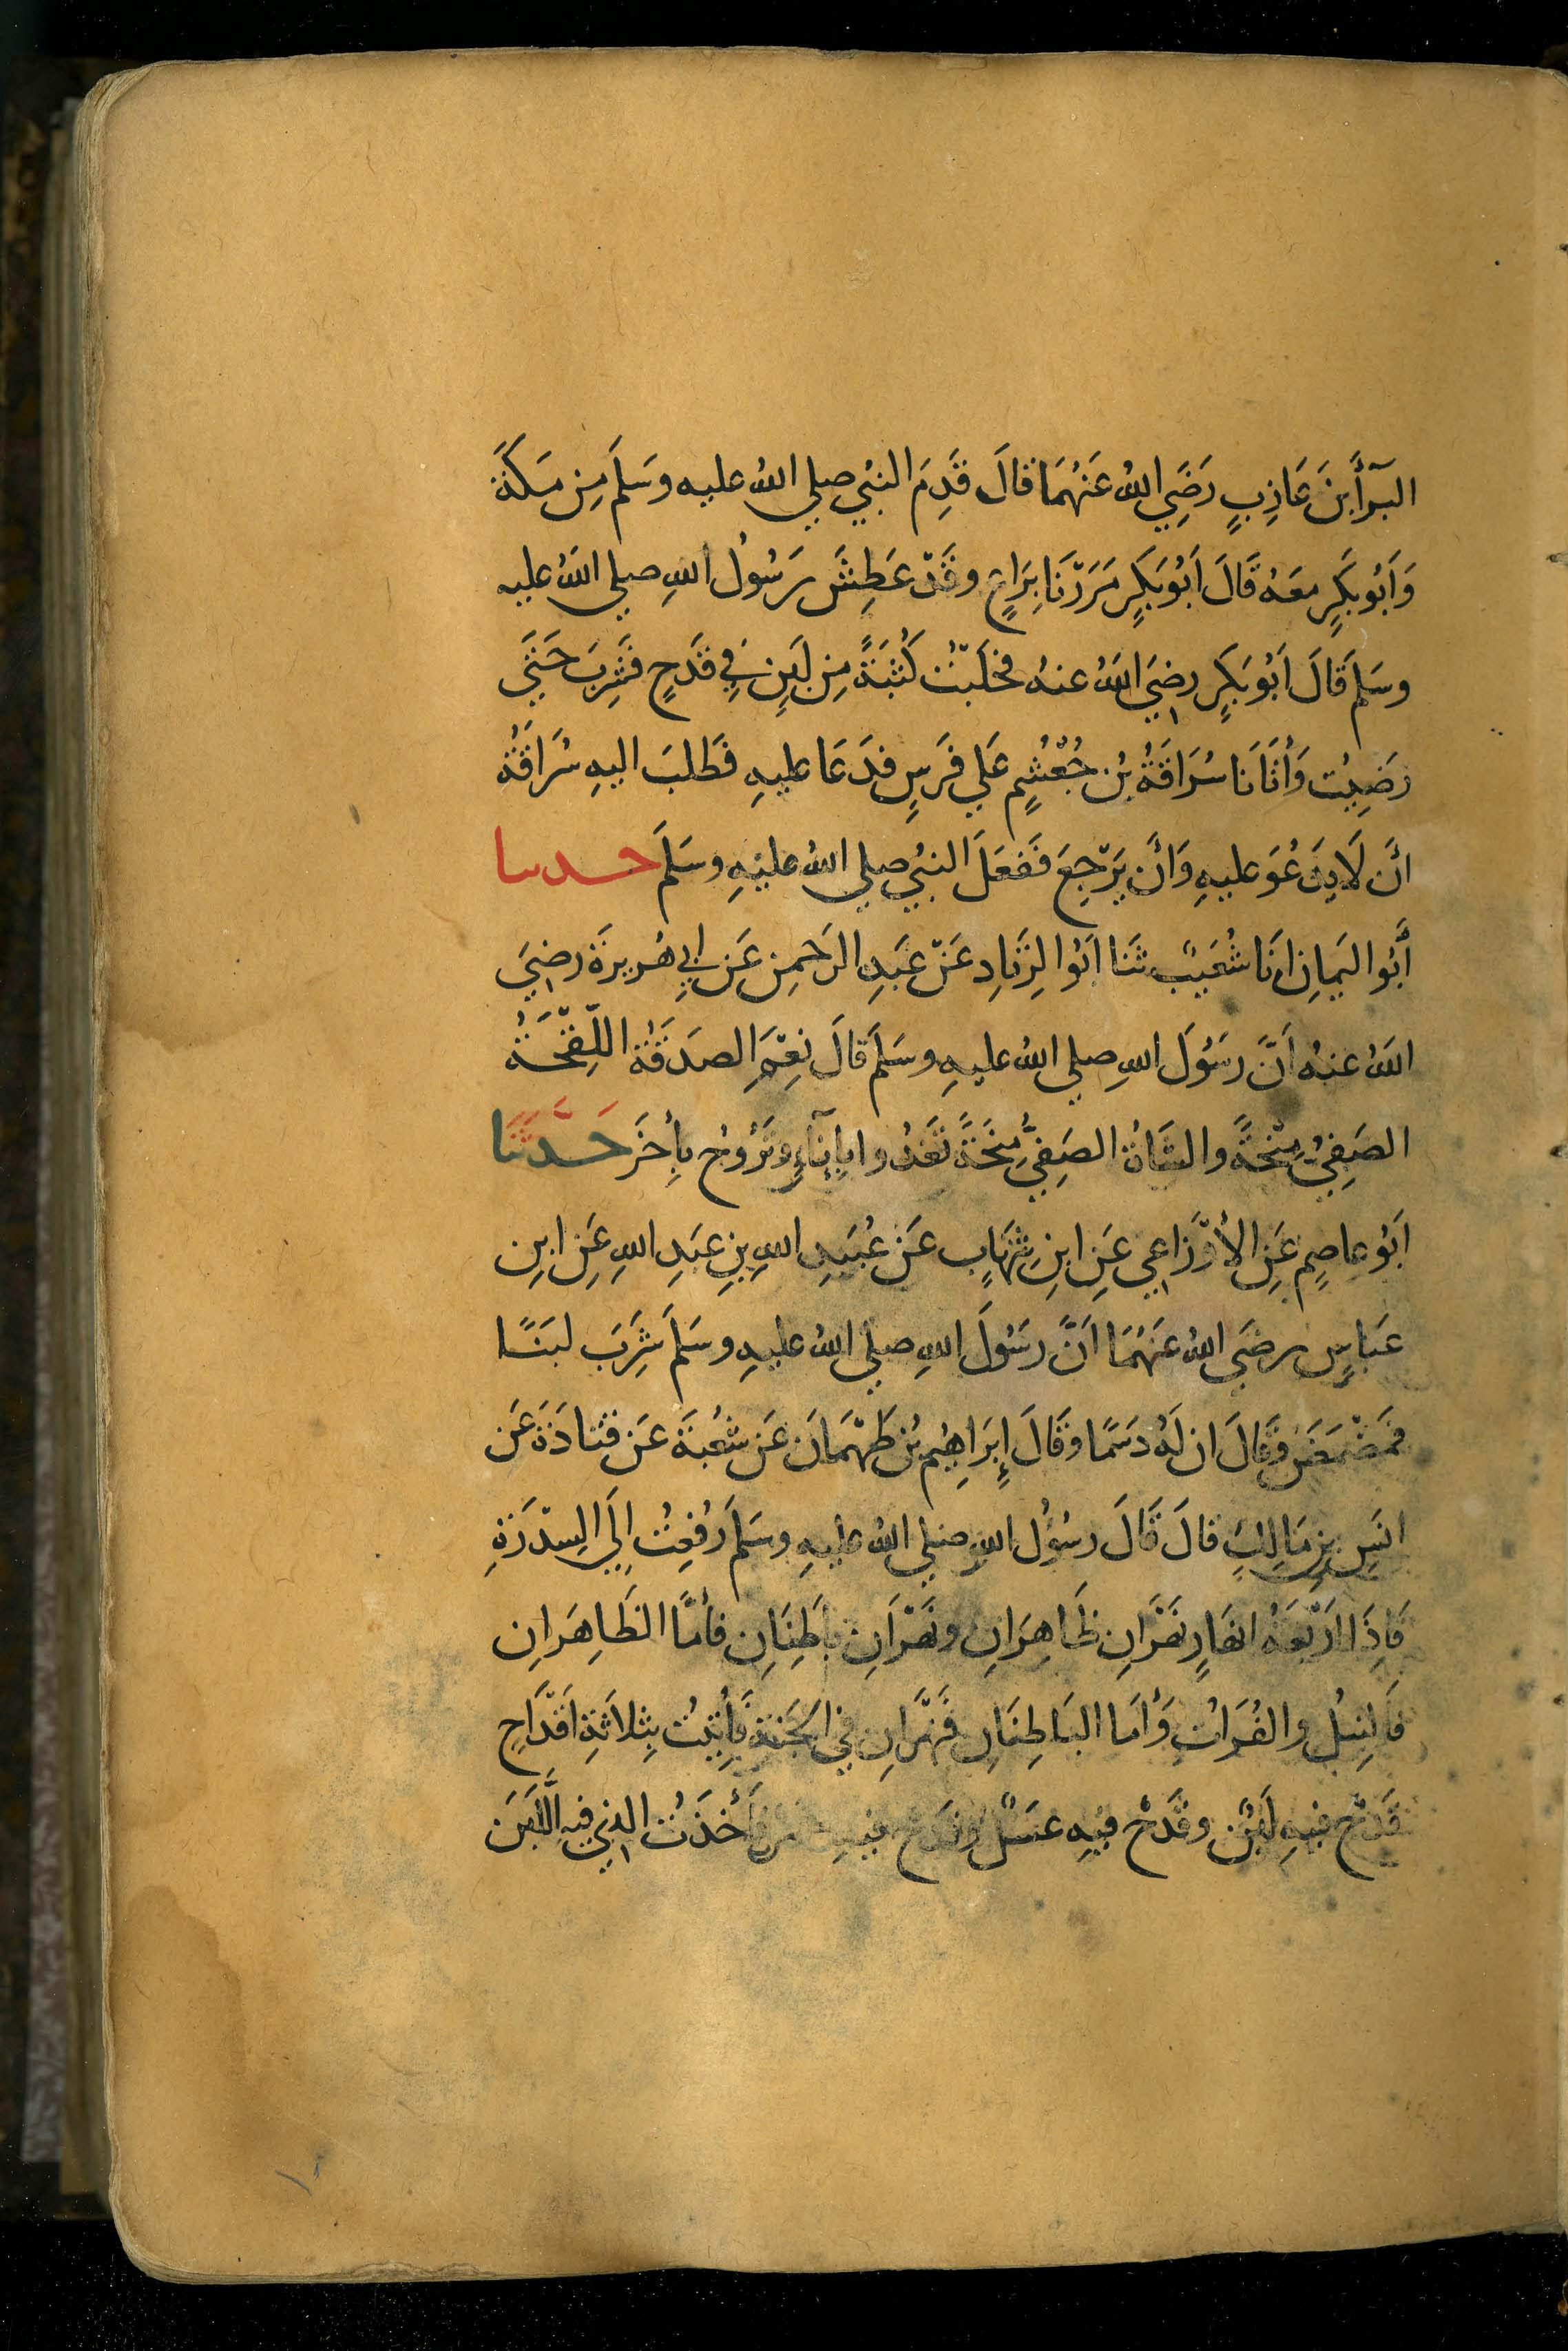 البَرآءَ بنَ عَازِبٍ رَضِيَ اللهُ عَنهُمَا قالَ قَدِمَ النبيُ صلي اللهُ عليه وسَلمَ مِن مَكَةَ
وَاَبُو بَكرٍ مَعَهُ قَالَ اَبُو بَكرٍ مَرَرْنَا بِرَاعٍ وقَدْ عَطِشَ رَسُولُ اللهِ صلي اللهُ عليه
وسَلمَ قَالَ اَبُو بَكرٍ رضِيَ اللهُ عنهُ فحَلَبْتُ كُثبَةً مِن لَبَنٍ فِي قَدَحٍ فشَرِبَ حَتَي
رَضِيتُ وَاَتَانَا سُرَاقَةُ بُن جُعْشُمٍ عَلي فَرَسٍ فدَعَا عليهِ فَطَلبَ اليهِ سُرَاقَةُ
اَن لَا يَدعُوَ عليهِ وَاَن يَرْجِعَ فَفعَلَ النبيُ صلي اللهُ عليْهِ وسَلمَ حدسا
اَبُو اليَمانِ اَنَا شُعَيبٌ ثَنَا اَبُو الزِنَادِ عَنْ عَبَدِ الرَحمنِ عَن اَبِي هُريرةَ رضِيَ
اللهُ عنهُ اَنَّ رَسُولَ اللهِ صلي اللهُ عليهِ وسَلمَ قالَ نِعْمَ الصدَقَةُ اللّقْحَةُ
الصَفِيُ مِنْحَةً والشَاةُ الصَفِيُّ مِنحَةً تَغدُوا بِاِنآءٍ وتَرُوحُ بِاَخَرَ حَدَّثَنَا
اَبُو عاصِمٍ عَنِ الأَوْزَاعِي عَنِ ابنِ شِهَابٍ عَن عُبَيدِ اللهِ بنِ عَبدِ اللهِ عَنِ ابنِ
عَباسٍ رضَي اللهُ عَنهُمَا اَنَّ رسُولَ اللهِ صلي اللهُ عليهِ وسَلمَ شَرِبَ لبَنًا
فمَضْمَضَ وقَالَ ان لَهُ دَسَمًا وقَالَ إِبرَاهِيُم بُن طَهْمَانَ عَن شُعْبَةَ عَن قتادَةَ عَن
انَسِ بنِ مَالِكٍ قالَ قَالَ رسُولُ اللهِ صلي اللهُ عليهِ وسَلمَ رُفِعتُ اِلَي السِدْرَةِ
فَاِذَا اَرْبَعَةُ انهَارٍ نَهْرَانِ ظَاهِرَانِ ونَهْرَانِ بَاطِنَانِ فأَمَّا الظَاهِرَانِ
فَالنِيلُ والفُرَاتُ وَأَمَا البَاطِنَانِ فَنهْرَانِ فِي الجَنةِ فَأُتِيتُ بِثلاثَةِ اَقْدَاحٍ
قَدَحٌ فيهِ لَبَنٌ وقَدَحٌ فيهِ عسَلٌ وقَدَحٌ فيهِ خمرٌ فَأَخَذتُ الذِي فيهِ اللَّبَنَ